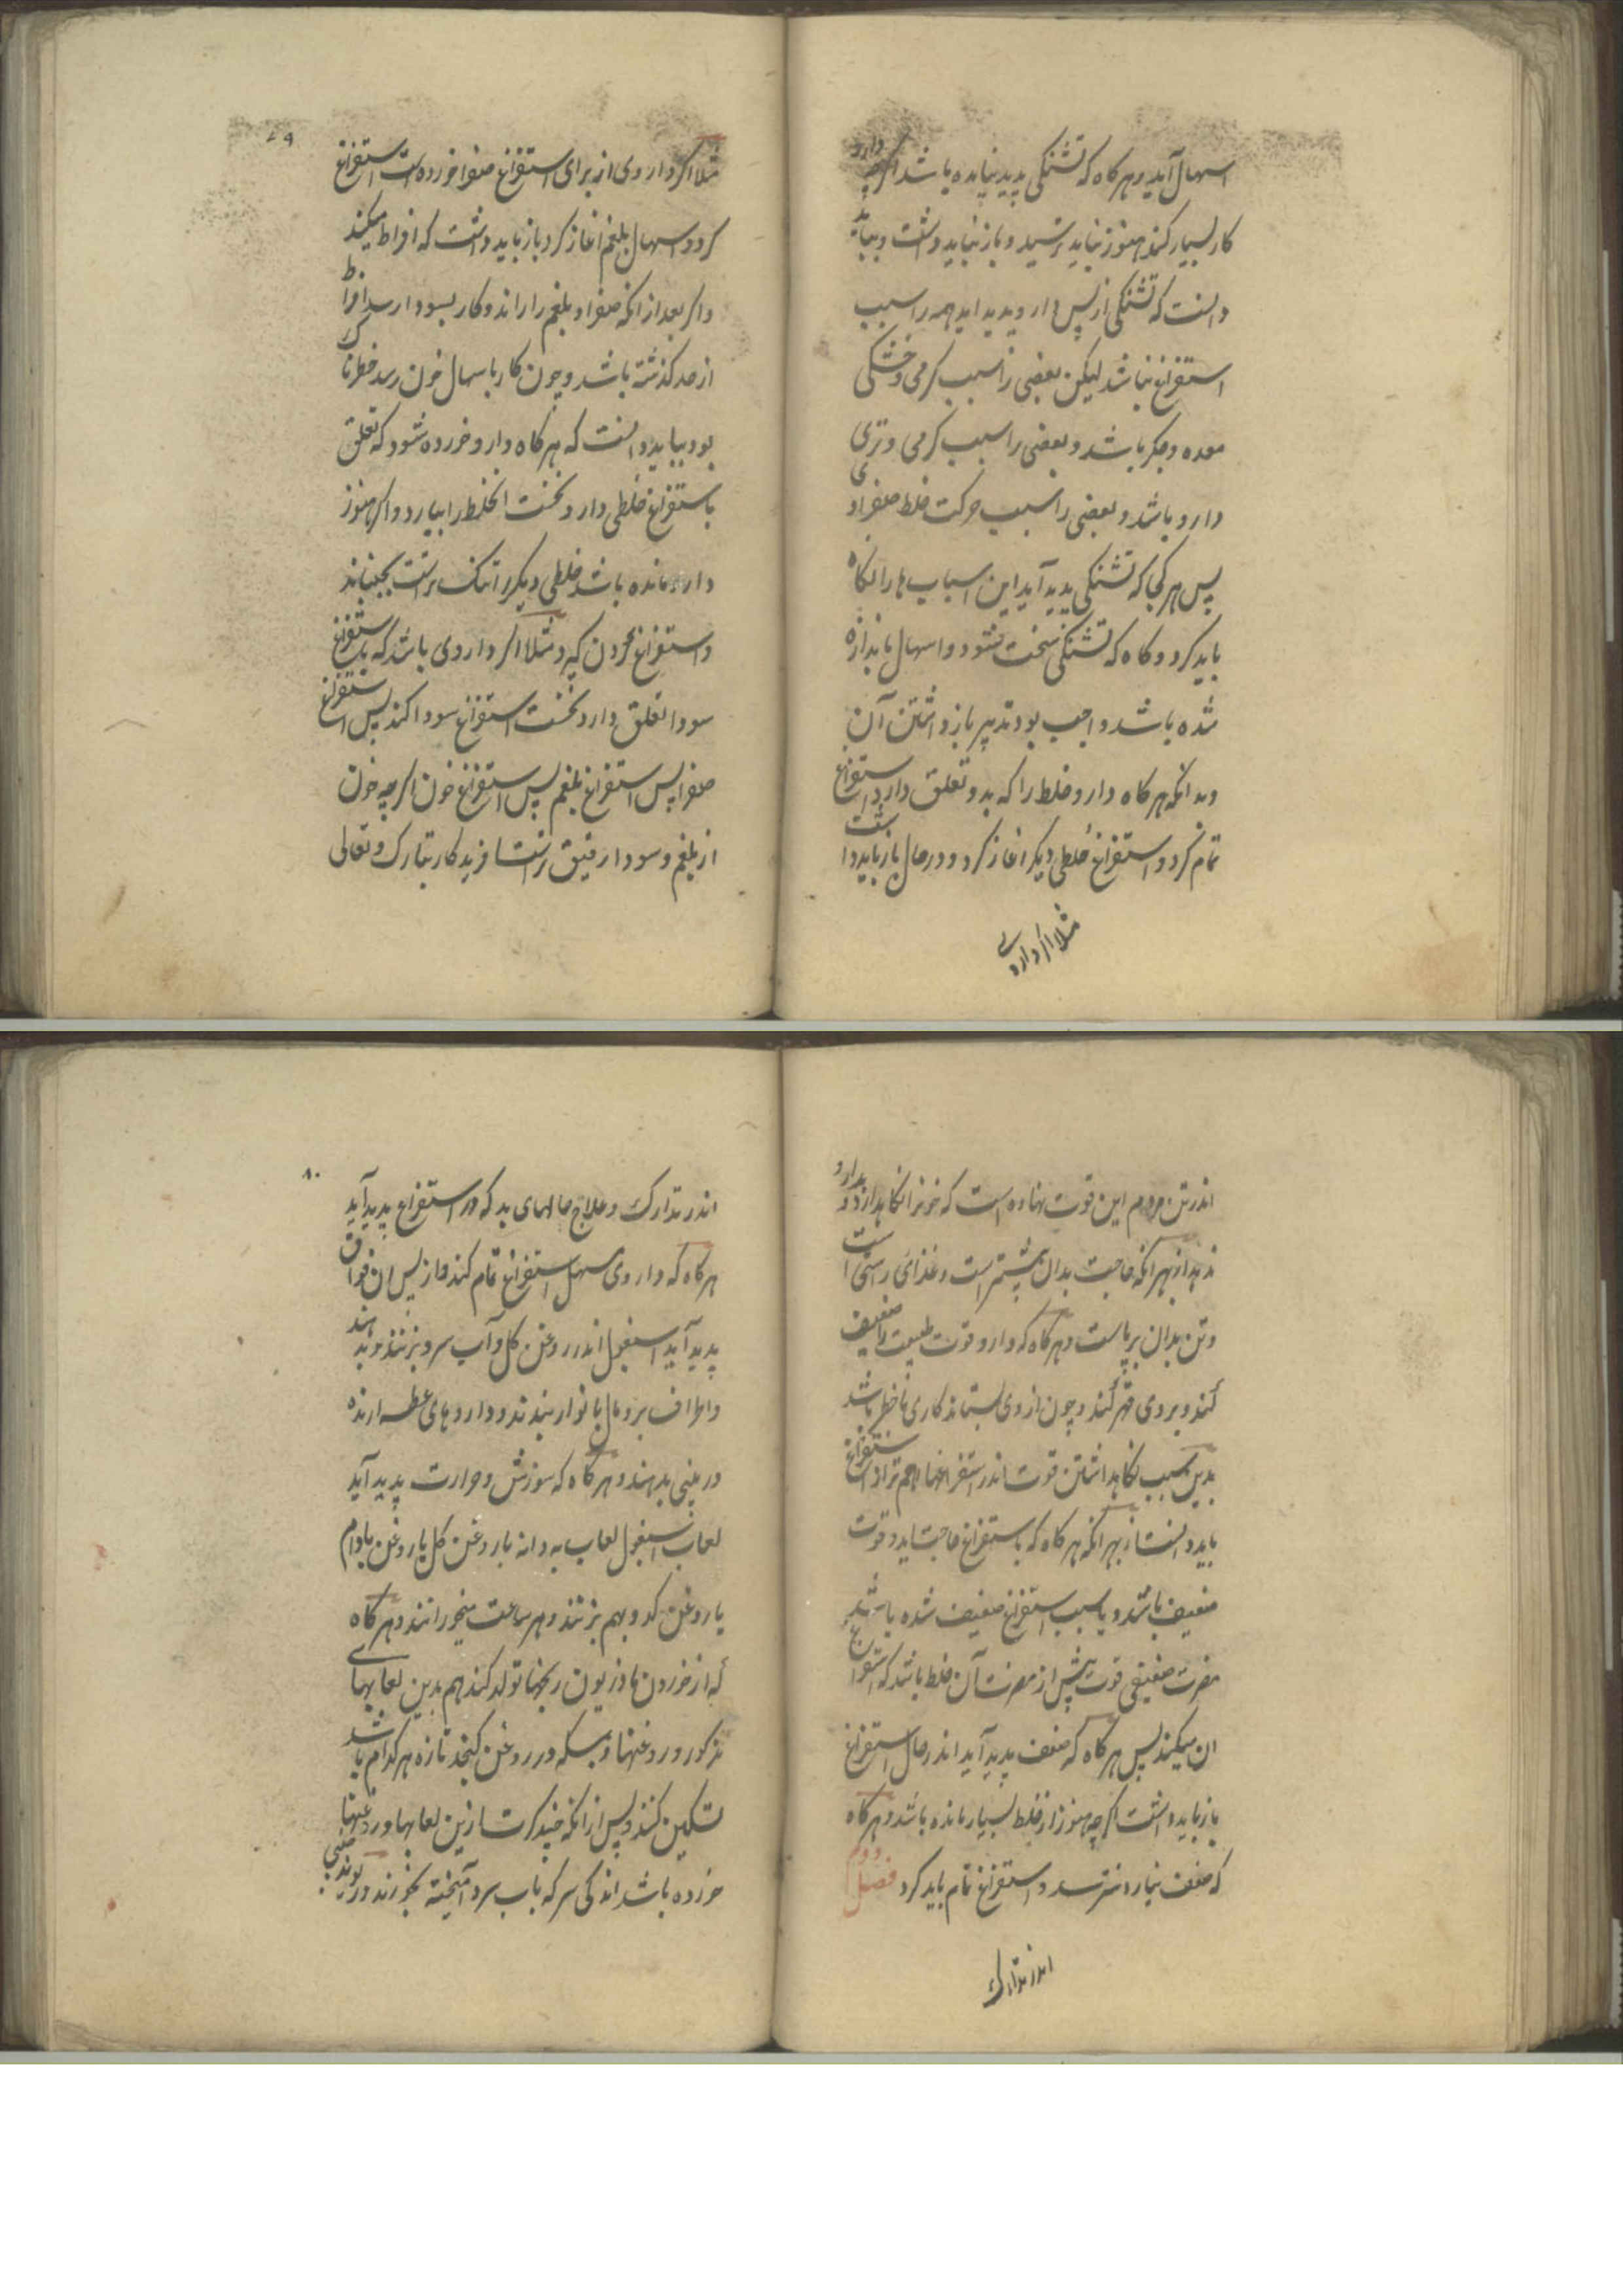 اسهال آید و هرگاه که تشنگی پدید نیامده باشد اگرچه دارو
کار بسیار کند هنوز نباید ترسید و باز نباید داشت و بباید
دانست که تشنگی از پس دارو پدید اید همه را سبب
استفراغ نباشد لیکن بعضی را سبب گرمی و خشکی
معده و جگر باشد و بعضی را سبب گرمی و تری
دارو باشد و بعضی را سبب حرکت خلط صفراوی
پس هر کجا که تشنگی پدید آید این اسباب ها را نگاه
باید کرد و گاه که تشنگی سخت شود و اسهال باندازه
شده باشد واجب بود تدبیر باز داشتن آن
و بدانکه هرگاه دارو خلط را که بدو تعلق دارد استفراغ
تمام کرد و استفراغ خلطی دیگر اغاز کرد و در حال باز باید داشت
مثلا اگر داروی
۷۹
مثلا اگر داروی از برای استفراغ صفرا خورده است استفراغ
کرد و اسهال بلغم اغاز کرد باز باید داشت که افراط میکند
و اگر بعد از انکه صفرا و بلغم را راند و کار بسودا رسد افراط
از حد گذشته باشد و چون کار باسهال خون رسد خطرناک
بود بباید دانست که هرگاه دارو خورده شود که تعلق
باستفراغ خلطی دارد نخست انخلط را بیارد و اگر هنوز
دارو مانده باشد خلطی دیگر را تنک ترست بجنباند
و استفراغ کردن گیرد مثلا اگر داروی باشد که باستفراغ
سودا تعلق دارد نخست استفراغ سودا کند پس استفراغ
صفرا پس استفراغ بلغم پس استفراغ خون اگرچه خون
از بلغم و سودا رقیق ترست افریدگار تبارک و تعالی
اندر تن مردم این قوت نهاده است که خونرا نگاهدارد و بدارو
ندهد از بهر انکه حاجت بدان بیشتر است و غذای راستی است
و تن بدان برپاست و هرگاه که دارو قوت طبیعت را ضعیف
کند و بروی قهر کند و چون از وی بستاند کاری با خطر باشد
بدین سبب نگاهداشتن قوت اندر استفراغها مهم تر از استفراغ
باید دانست از بهر انکه هرگاه که باستفراغ حاجت اید و قوت
ضعیف باشد و یا سبب استفراغ ضعیف شده باشد
مضرت ضعیفی قوت بیش از مضرت آن خلط باشد که استفراغ
ان میکند پس هرگاه که ضعف پدید آید اندر حال استفراغ
باز باید داشت اگرچه هنوز از خلط بسیار مانده باشد و هرگاه
که ضعف نیارد نترسد و استفراغ تمام باید کرد فصل دوم
اندر تدارک
۸۰
اندر تدارک و علاج حالهای بد که در استفراغ پدید آید
هرگاه که داروی مسهل استفراغ تمام کند و از پس ان فواق
پدید آید اسبغول اندر روغن گل و آب سرد بزنند و بدهند
و اطراف برومال با نوار ببندند و داروهای عطسه ارنده
در بینی بدهند و هرگاه که سوزش و حرارت پدید آید
لعاب اسبغول لعاب به دانه با روغن گل یا روغن بادام
یا روغن کدو بهم بزنند و هر ساعت میخورانند و هرگاه
که از خوردن مازریون رنجها تولد کند هم بدین لعابهای
مذکور و روغنها و مسکه و روغن کنجد تازه هر کدام باشد
تسکین کنند و پس از انکه چند کرت ازین لعابها و روغنها
خورده باشد اندکی سرکه باب سرد آمیخته بخورند و ریوند چینی